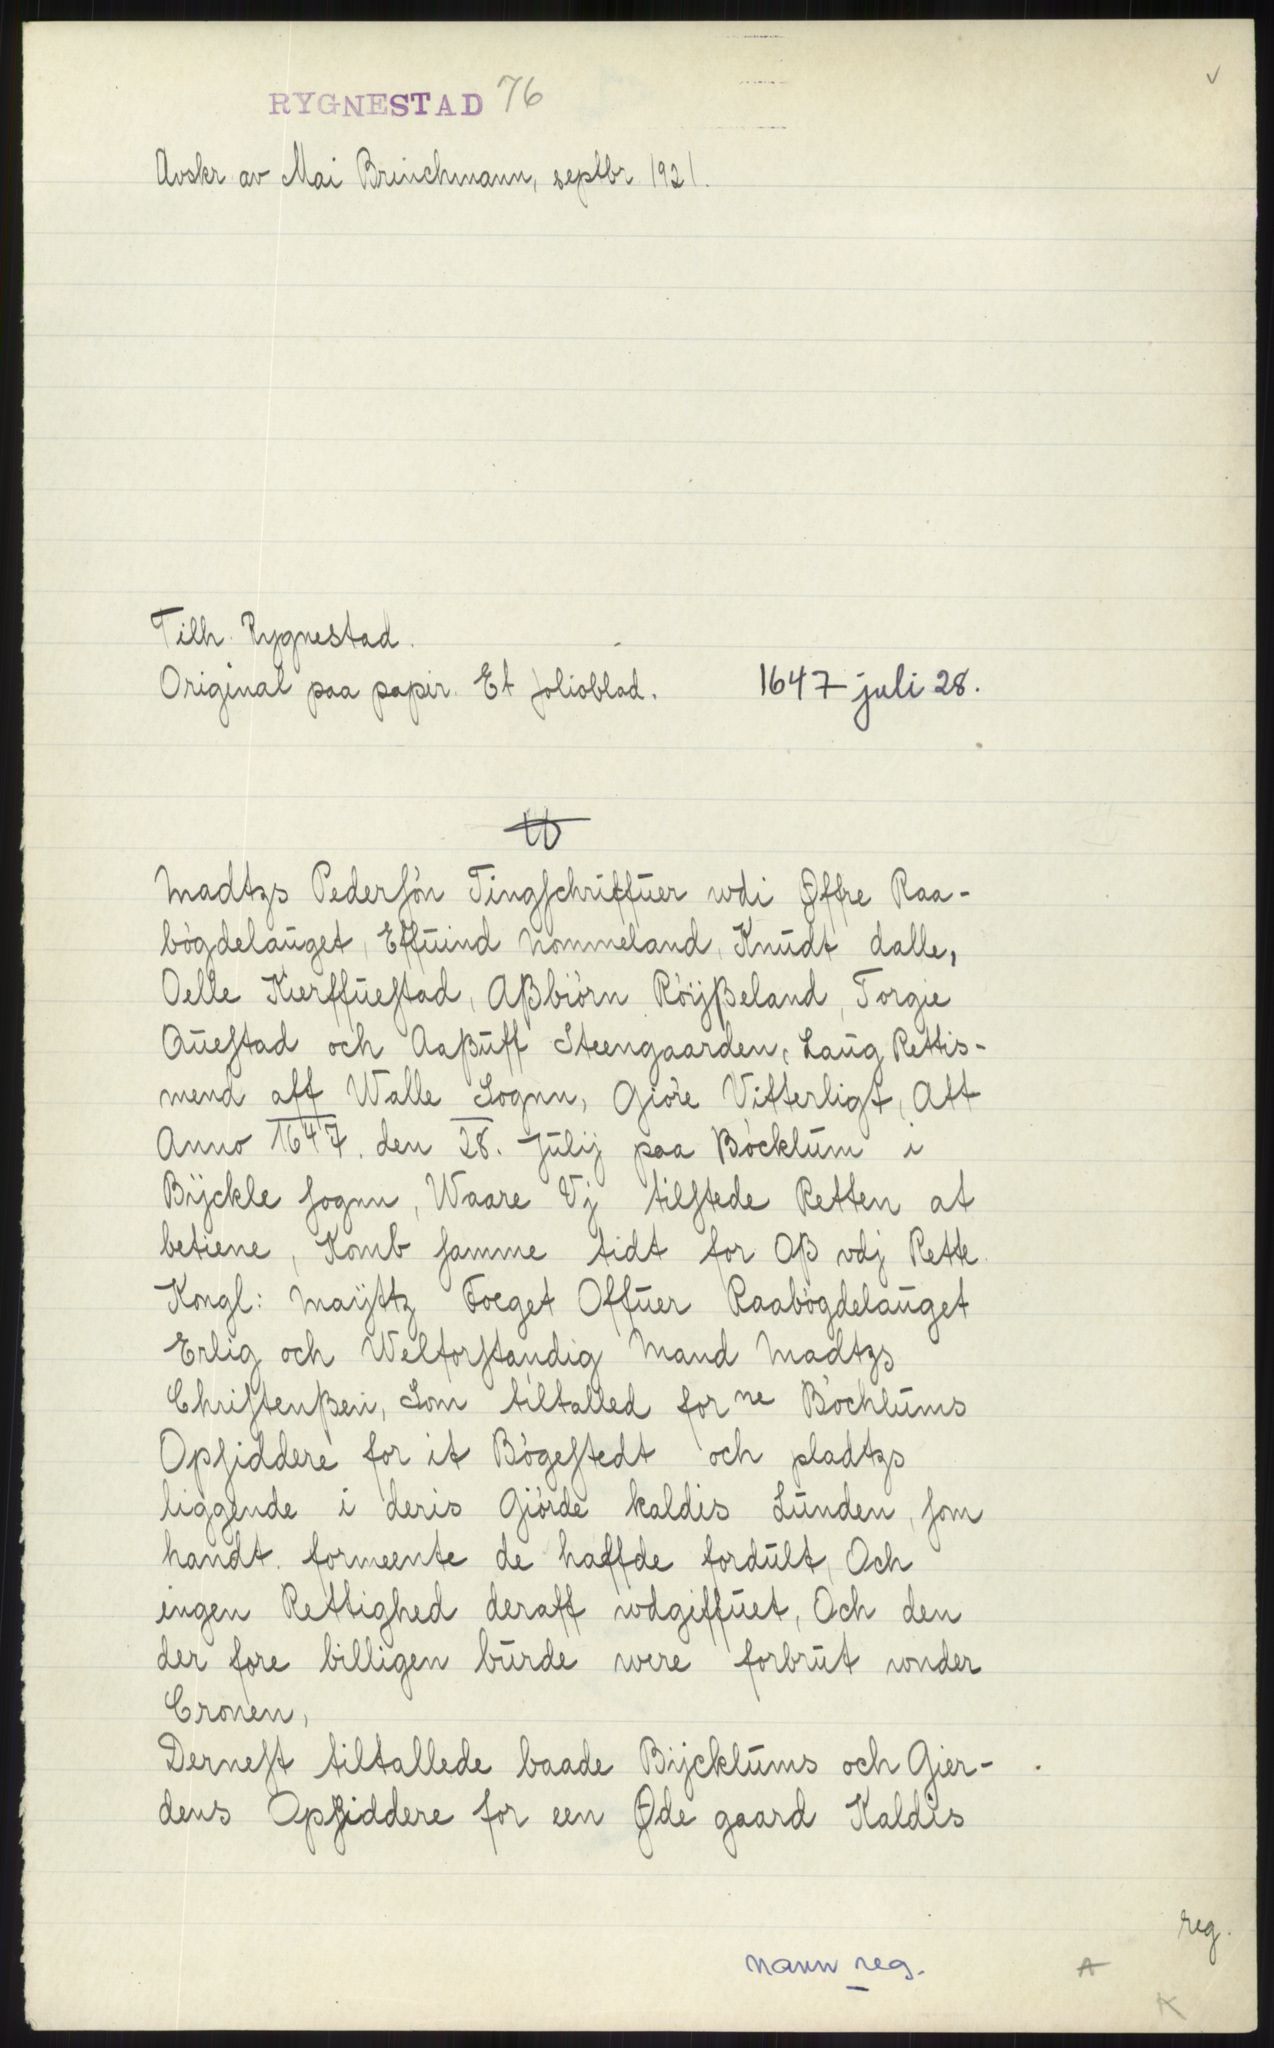 RYGNESTAD 76
Avskr av Mai Brinchmann, septbr 1921.
Tilh. Rygnestad.
Original paa papir. Et folioblad. 1647 juli 28.
Madtzs Pederſön Tingſchriffuer wdi Øffre Raa-
bögdelauget, Effuind Nommeland, Knudt dalle,
Oelle Kierffueſtad, Aßbiörn Röijßeland, Torgie
Queſtad och Aaßuff Steengaarden, Laug Rettis-
mend aff Walle Sognn, Giöre Vitterligt, Att
Anno 1647. den 28. Julij paa Böcklum i
Bijckle ſognn, Waare Vj tilſtede Retten at
betiene, Komb ſamme tidt for Oß vdj Rette
Kongl: Maijttz Foeget Offuer Raabögdelauget
Erlig och Welforſtandig Mand Madtzs
Chriſtenßen, Som tiltalled for ne Böchlums
Opſiddere for it Bögeſtedt och pladtzs
liggende i deris Giörde kaldis Lunden, ſom
handt formeente de haffde fordult, Och
ingen Rettighed deraff wdgiffuet, Och den
der fore billigen burde were forbrut wnder
Cronen,
Derneſt tiltallede baade Bijcklums och Gier-
dens Opſiddere for een Øde gaard Kaldis
reg.
navn reg.
A
K